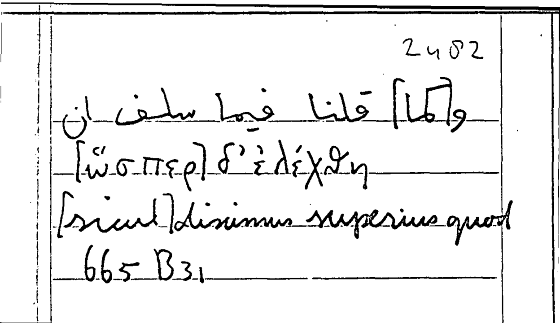 2482
و[كما] قلنا فيما سلف ان
[ὥσπερ] δ' ἐλέχθη
[sicut] diximus superius quod
665 B31